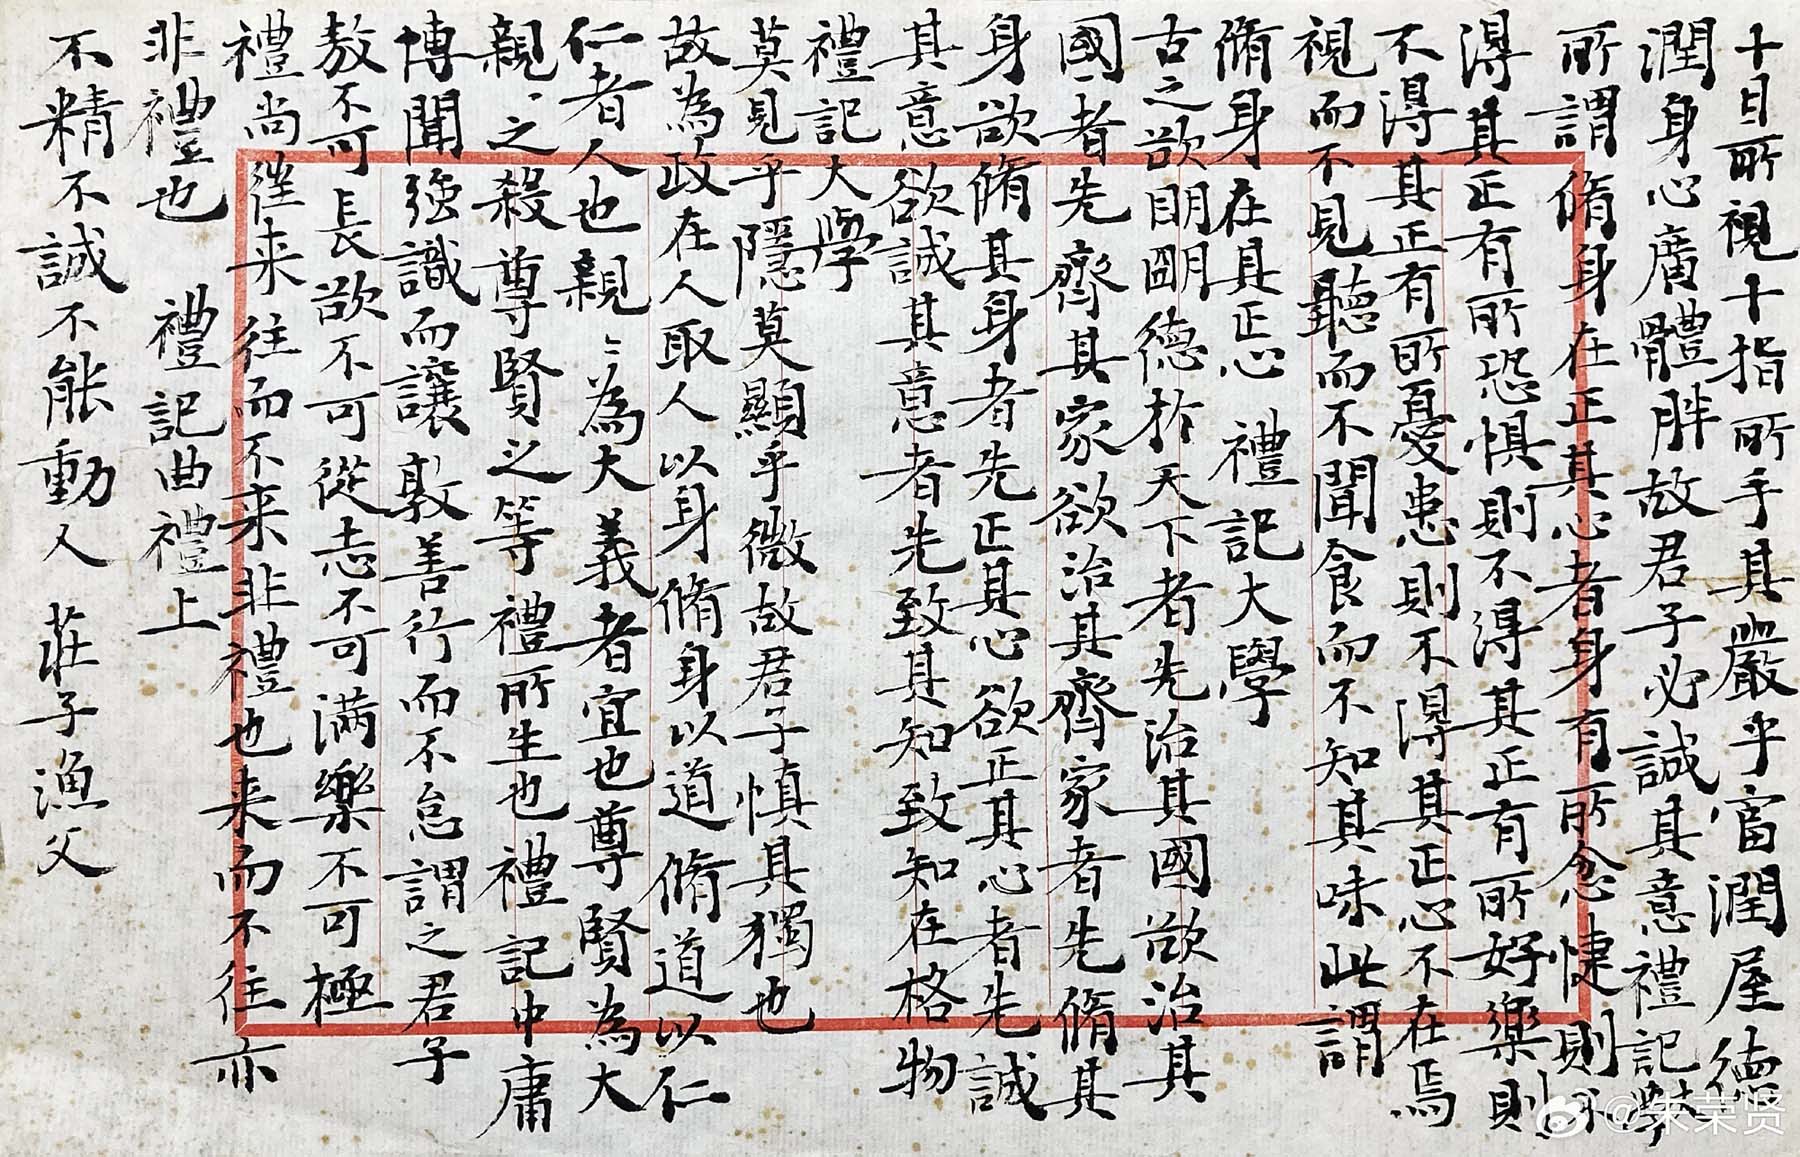 十目所視十指所手其嚴乎富潤屋德
潤身心廣體胖故君子必誠其意禮記大學
所謂脩身在正其心者身有所忿懥則不
得其正有所恐惧則不得其正有所好樂則
不得其正有所憂患則不得其正心不在焉
視而不見聽而不聞食而不知其味此謂
脩身在其正心 禮記大學
古之欲明明德於天下者先治其國欲治其
國者先齊其家欲治其齊家者先脩其
身欲脩其身者先正其心欲正其心者先誠
其意欲誠其意者先致其知致知在格物
禮記大學
莫見乎隱莫顯乎微故君子慎其獨也
故為政在人取人以身脩身以道脩道以仁
仁者人也親〻為大義者宜也尊賢為大
親〻之殺尊賢之等禮所生也禮記中庸
博聞強識而讓敦善行而不怠謂之君子
敖不可長欲不可從志不可滿樂不可極
禮尚往来往而不来非禮也来而不往亦
非禮也 禮記曲禮上
不精不誠不能動人 莊子漁父
@朱荣贤